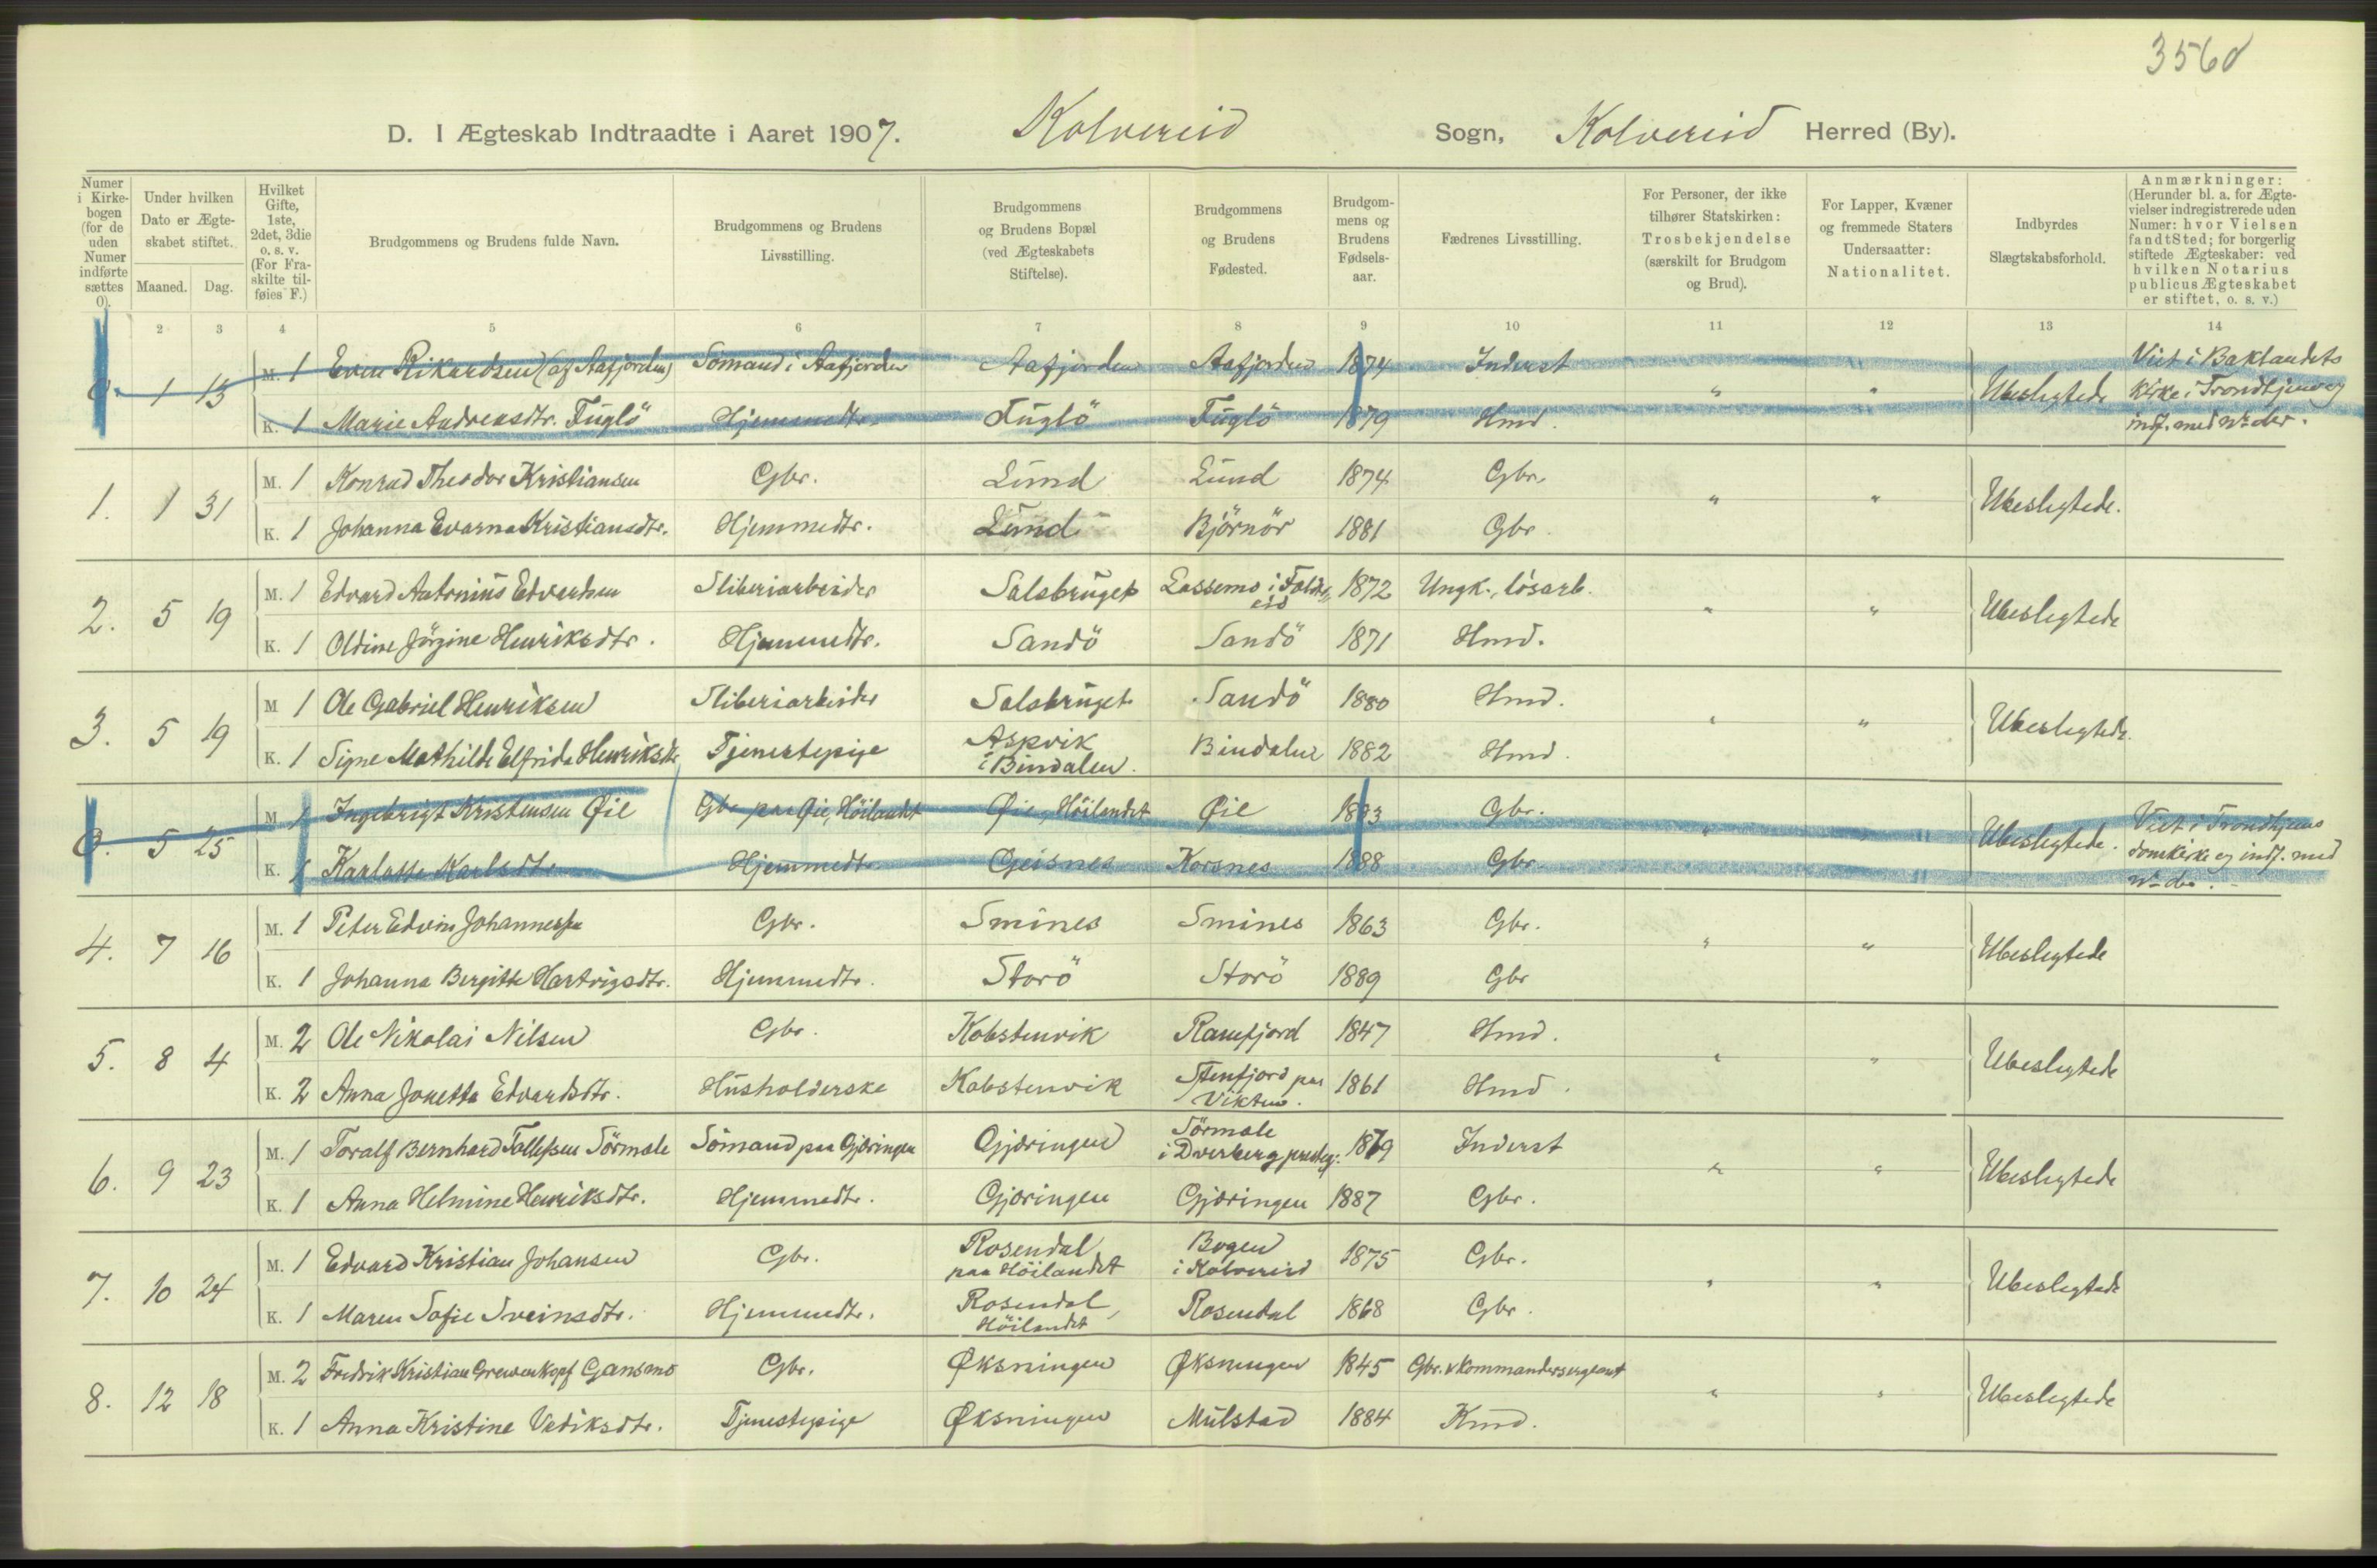 3560
D. I Ægteskab Indtraadte i Aaret 1907. Kolvereid Sogn, Kolvereid Herred (By).
Numer i Kirkebogen (for de uden Numer indførte sættes 0).
Under hvilken Dato er Ægteskabet stiftet.
Maaned. Dag.
Hvilket Gifte, 1ste, 2det, 3die o. s. v. (For Fraskilte tilføies F.)
Brudgommens og Brudens fulde Navn.
Brudgommens og Brudens Livsstilling.
Brudgommens og Brudens Bopæl (ved Ægteskabets Stiftelse).
Brudgommens og Brudens Fødested.
Brudgommens og Brudens Fødselsaar.
Fædrenes Livsstilling.
For Personer, der ikke tilhører Statskirken: Trosbekjendelse (særskilt for Brudgom og Brud).
For Lapper, Kvæner og fremmede Staters Undersaatter: Nationalitet.
Indbyrdes Slægtskabsforhold.
Anmærkninger: (Herunder bl. a. for Ægtevielser indregistrerede uden Numer: hvor Vielsen fandt Sted; for borgerlig stiftede Ægteskaber: ved hvilken Notarius publicus Ægteskabet er stiftet, o. s. v.)
2 3 4 5 6 7 8 9 10 11 12 13 14
0. 1 13 M. 1 Even Rikardsen (af Aafjorden) Sömand i Aafjorden Aafjorden Aafjorden 1874 Inderst " " Ubeslegtede Viet i Baklandets Kirke i Trondhjem og indf. med No der.
K. 1 Marie Andreasdtr. Fuglö Hjemmedtr. Fuglö Fuglö 1879 Hmd.
1. 1 31 M. 1 Konrad Theodor Kristiansen Gbr. Lund Lund 1874 Gbr. " " Ubeslegtede.
K. 1 Johanna Evarna Kristiansdtr. Hjemmedtr. Lund Björnör 1881 Gbr.
2. 5 19 M. 1 Edvard Antonius Edvardsen Sliberiarbeider Salsbruget Lassemo i Foldereid 1872 Ungk., lösarb. " " Ubeslegtede
K. 1 Oldine Jörgine Henriksdtr. Hjemmedtr. Sandö Sandö 1871 Hmd.
3. 5 19 M 1 Ole Gabriel Henriksen Sliberiarbeider Salsbruget Sandö 1880 Hmd. " " Ubeslegtede.
K. 1 Signe Mathilde Elfrida Henriksdtr Tjenestepige Aspvik i Bindalen. Bindalen 1882 Hmd.
0. 5 25 M 1 Ingebrigt Kristensen Øie Gbr paa Øie, Höilandet Øie, Höilandet Øie 1883 Gbr. " " Ubeslegtede. Viet i Trondhjems domkirke og indf. med No der.
K. 1 Karlotte Karlsdtr. Hjemmedtr. Geisnes Korsnes 1888 Gbr.
4. 7 16 M. 1 Peter Edvin Johannessen Gbr. Smines Smines 1863 Gbr. " " Ubeslegtede
K. 1 Johanna Bergitte Hartvigsdtr. Hjemmedtr. Storö Storö 1889 Gbr
5. 8 4 M. 2 Ole Nikolai Nilsen Gbr. Kobstenvik Ranefjord 1847 Hmd. " " Ubeslegtede
K. 2 Anna Jonetta Edvardsdtr. Husholderske Kobstenvik Stenfjord paa Vikten. 1861 Hmd.
6. 9 23 M. 1 Toralf Bernhard Tollefsen Sörmole Sömand paa Gjæringen Gjæringen Sörmole i Dverberg prestegj. 1879 Inderst " " Ubeslegtede
K. 1 Anna Helmine Henriksdtr. Hjemmedtr. Gjæringen Gjæringen 1887 Gbr.
7. 10 24 M. 1 Edvard Kristian Johansen Gbr. Rosendal paa Höilandet Bogen i Kolvereid 1875 Gbr. " " Ubeslegtede
K. 1 Maren Sofie Sveinsdtr. Hjemmedtr. Rosendal, Höilandet Rosendal 1868 Gbr.
8. 12 18 M. 2 Fredrik Kristian Grewenkopf Gansmo Gbr. Øksningen Øksningen 1845 Gbr. & kommandersergeant " " Ubeslegtede
K. 1 Anna Kristine Vediksdtr. Tjenestepige Øksningen Mulstad 1884 Kmd.